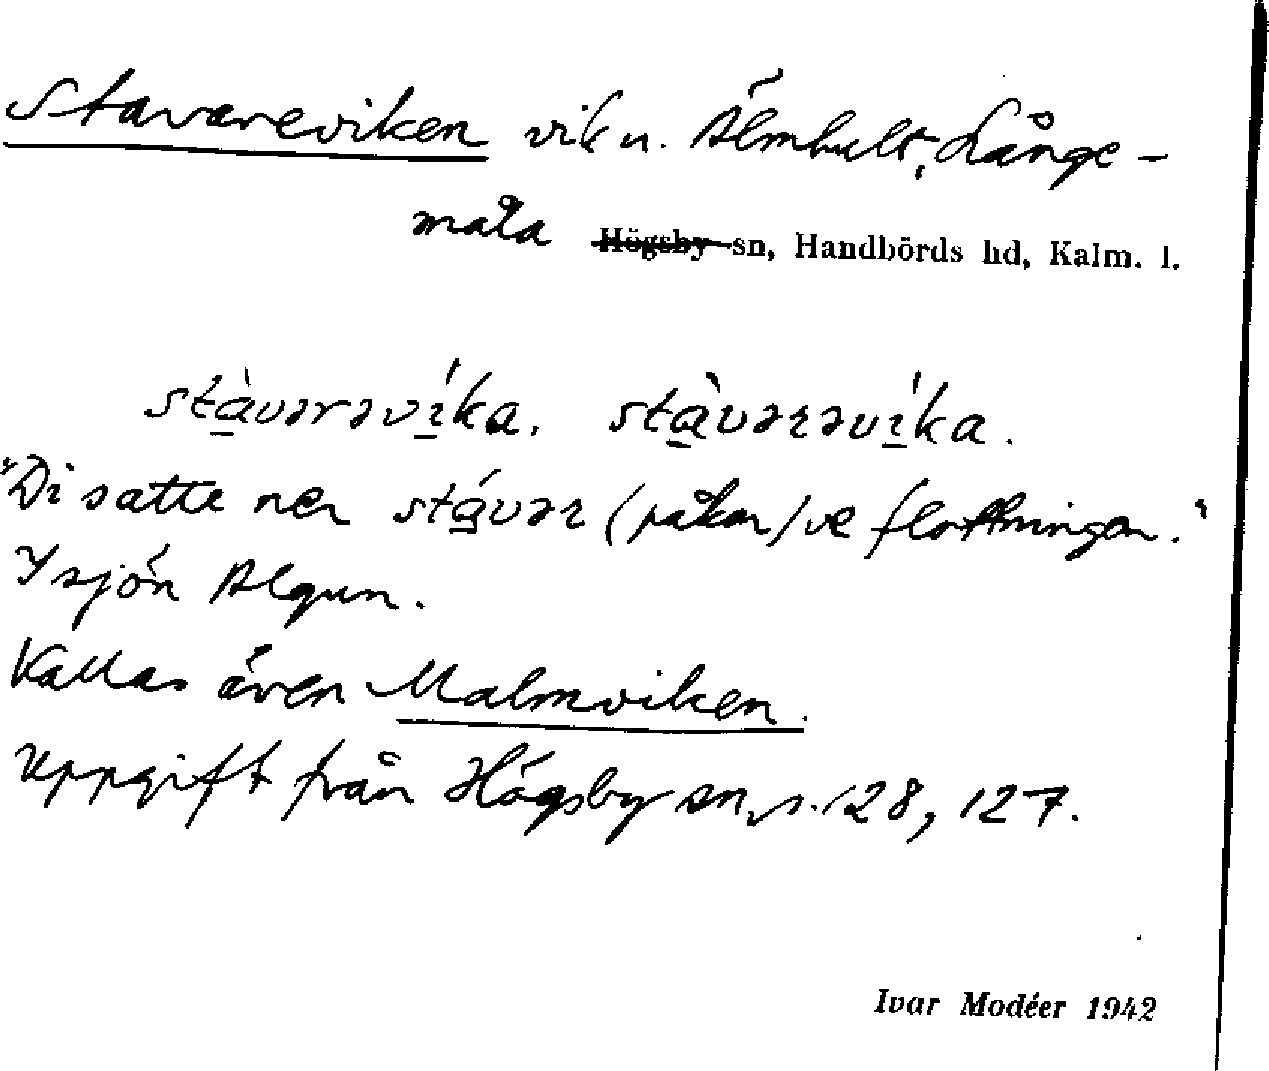 Stavareviken vik u. Älmhult, Långe-
måla Högsby sn, Handbörds hd, Kalm. l.
stàvərəvíka. stàvəɀəvíka.
"Di satte ner stávəɀ (påkar) ve flottningen."
I sjön Algun.
Kallas även Malmviken.
Uppgift från Högsby sn, s. 128, 127.
Ivar Modéer 1942